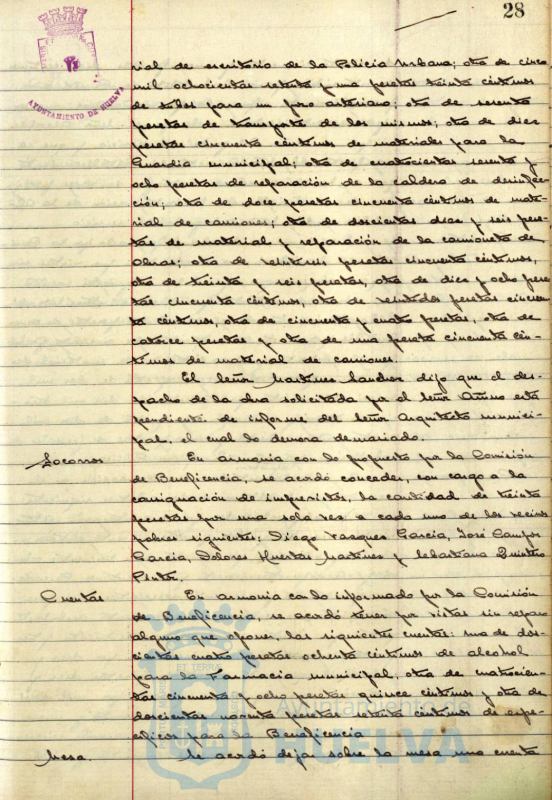 28
AYUNTAMIENTO DE HUELVA
rial de escritorio de la Policía Urbana; otra de cinco
mil ochocientas setenta y una pesetas treinta céntimos
de tubos para un pozo artesiano; otra de sesenta
pesetas de transporte de los mismos; otra de diez
pesetas cincuenta céntimos de materiales para la
Guardia municipal; otra de cuatrocientas sesenta y
ocho pesetas de reparación de la caldera de desinfec-
ción; otra de doce pesetas cincuenta céntimos de mate-
rial de camiones; otra de doscientas diez y seis pese-
tas de material y reparación de la camioneta de
Obras; otra de veintiseis pesetas cincuenta céntimos,
otra de treinta y seis pesetas, otra de diez y ocho pese-
tas cincuenta céntimos, otra de veintidos pesetas cincuen-
ta céntimos, otra de cincuenta y cuatro pesetas, otra de
catorce pesetas y otra de una peseta cincuenta cén-
timos de material de camiones.
El Señor Martinez Sanchez dijo que el des-
pacho de la obra solicitada por el Señor está
pendiente de informe del Señor Arquitecto munici-
pal, el cual lo demora demasiado.
Socorros
En armonia con lo propuesto por la Comisión
de Beneficencia, se acordó conceder, con cargo a la
consignación de imprevistos, la cantidad de treinta
pesetas por una sola vez a cada uno de los vecinos
pobres siguientes: Diego Vazquez Garcia, José Campos
Garcia, Dolores Huertas Martinez y Sebastiana Quintero
Pintor.
Cuentas
En armonia con lo informado por la Comisión
de Beneficencia, se acordó tener por vistas sin reparo
alguno que oponer, las siguientes cuentas: una de dos-
cientas cuatro pesetas ochenta céntimos de alcohol
para la Farmacia municipal, otra de cuatrocien-
tas cincuenta y ocho pesetas quince céntimos y otra de
doscientas noventa pesetas setenta céntimos de espe-
cificos para la Beneficencia
Ayuntamiento de
HUELVA
Mesa.
Se acordó dejar sobre la mesa una cuenta